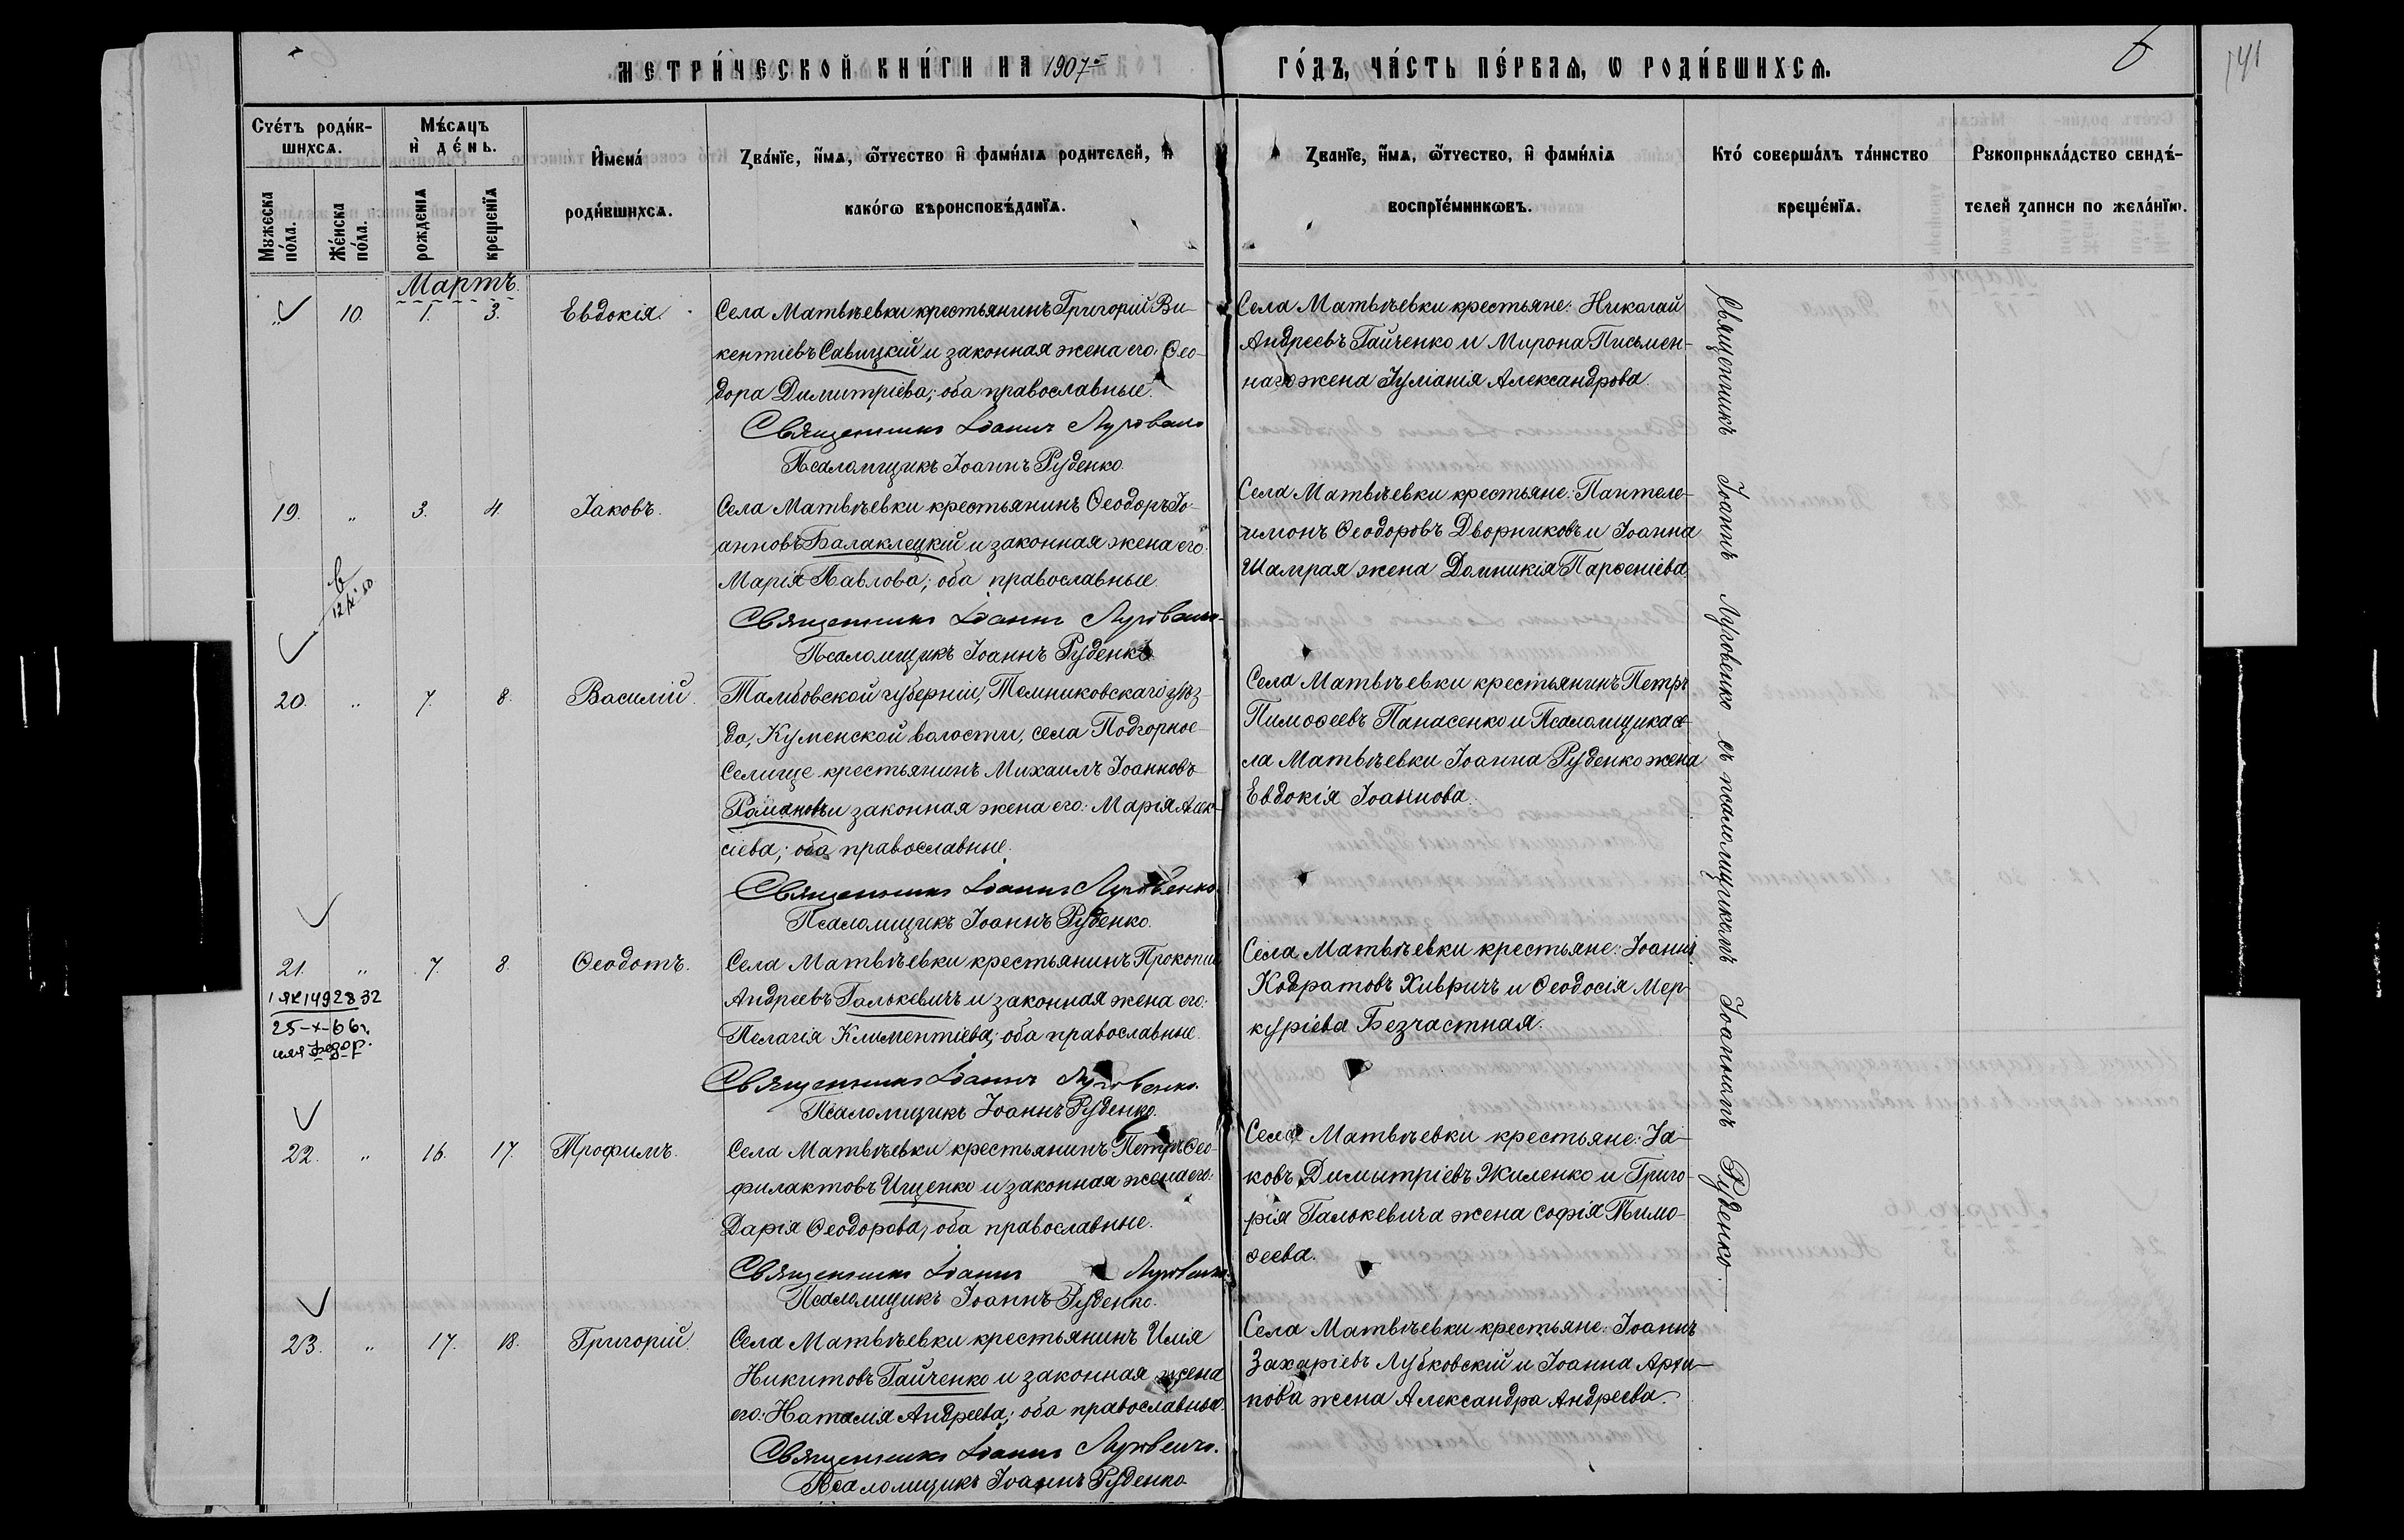 МЕТРИ́ЧЕСКОЙ КНИ́ГИ НА 1907й ГО́ДЪ, ЧА́СТЬ ПЕ́РВАѦ, Ѡ РОДИ́ВШИХСѦ.
6
141
Счéтъ роди́в-
шихсѧ.
Мꙋжеска
по́ла.
Же́нска
по́ла.
Мѣ́сѧцъ
и҆ де́нь.
рожденїѧ
крещенїѧ
И҆мена́
роди́вшихсѧ.
Зва́нїе, и҆́мѧ, ѻ҆́тчество и҆ фами́лїѧ родителей, и҆
како́гѡ вѣроисповѣ́данїѧ.
Зва́нїе, и҆́мѧ, ѻ҆́тчество, и҆ фами́лїѧ
воспрїе́мникѡвъ.
Кто́ соверша́лъ та́инство
креще́нїѧ.
Рꙋкоприкла́дство свидѣ́-
телей записи по жела́нїю.
Мартъ.
„ 10. 1. 3. Евдокія.
Села Матвѣевки крестьянинъ Григорий Ви-
кентіевъ Савицкій и законная жена его: Ѳео-
дора Димитріева; оба православные.
Священникъ Іоаннъ Луговенко
Псаломщикъ Іоаннъ Руденко.
Села Матвѣевки крестьяне: Николай
Андреевъ Гайченко и Мирона Письмен-
наго жена Іуліанія Александрова.
Священникъ Іоаннъ Луговенко съ псаломщикомъ Іоанномъ Руденко
19. „ 3. 4. Іаковъ.
Села Матвѣевки крестьянинъ Ѳеодоръ Іо-
анновъ Балаклецкій и законная жена его:
Марія Павлова; оба православные.
Священникъ Іоаннъ Луговенко
Псаломщикъ Іоаннъ Руденко
Села Матвѣевки крестьяне: Пантеле-
имонъ Ѳеодоровъ Дворниковъ и Іоанна
Шамрая жена Домникія Парѳеніева.
20. „ 7. 8. Василій.
Тамбовской губерніи, Темниковскаго уѣз-
да, Куменской волости, села Подгорное
Селище крестьянинъ Михаилъ Іоанновъ
Романовъ и законная жена его: Марія Алек-
сіева; оба православные.
Священникъ Іоаннъ Луговенко
Псаломщикъ Іоаннъ Руденко.
Села Матвѣевки крестьянинъ Петръ
Тимоѳеевъ Панасенко и Псаломщика се-
ла Матвѣевки Іоанна Руденко жена
Евдокія Іоаннова.
21. „ 7. 8. Ѳеодотъ.
1 ЯК 1492832
25-X-66г.
имя Федор.
Села Матвѣевки крестьянинъ Прокопій
Андреевъ Галькевичъ и законная жена его:
Пелагія Климентіева; оба православные.
Священникъ Іоаннъ Луговенко.
Псаломщикъ Іоаннъ Руденко.
Села Матвѣевки крестьяне: Іоаннъ
Кодратовъ Хивричъ и Ѳеодосія Мер-
куріева Безчастная.
22. „ 16. 17. Трофимъ.
Села Матвѣевки крестьянинъ Петръ Ѳео-
филактовъ Ищенко и законная жена его:
Дарія Ѳеодорова; оба православные.
Священникъ Іоаннъ Луговенко.
Псаломщикъ Іоаннъ Руденко.
Села Матвѣевки крестьяне: Іа-
ковъ Димитріевъ Жиленко и Григо-
рія Галькевича жена Софія Тимо-
ѳеева.
23. „ 17. 18. Григорій.
Села Матвѣевки крестьянинъ Илія
Никитовъ Гайченко и законная жена
его: Наталія Андреева; оба православные.
Священникъ Іоаннъ Луговенко.
Псаломщикъ Іоаннъ Руденко
Села Матвѣевки крестьяне: Іоаннъ
Захаріевъ Лубковскій и Іоанна Архи-
пова жена Александра Андреева.